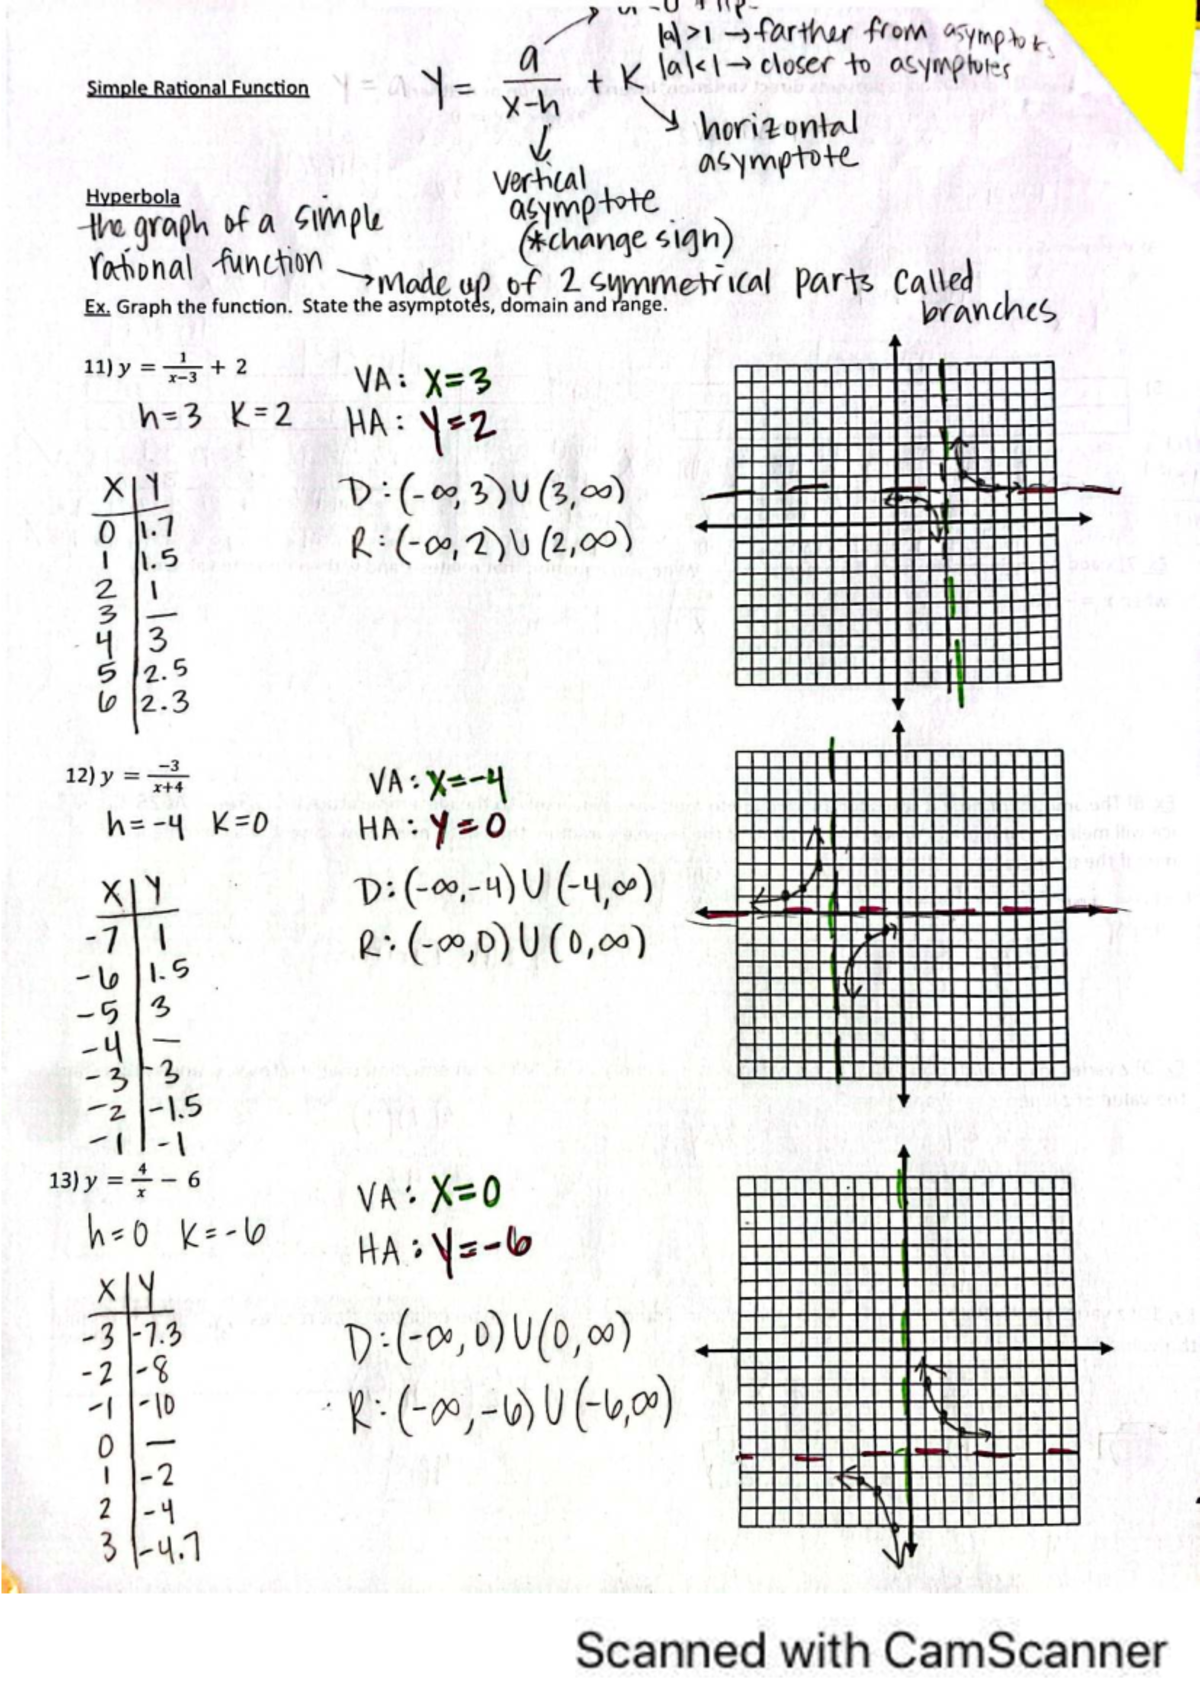 |a|>1 → farther from asymptotes
Simple Rational Function
Y = a/(x-h) + K
|a|<1 → closer to asymptotes
horizontal
asymptote
vertical
asymptote
(*change sign)
Hyperbola
the graph of a simple
rational function
→ made up of 2 symmetrical parts called
branches
Ex. Graph the function. State the asymptotes, domain and range.
11) y = 1/(x−3) + 2
h=3 K=2
VA: X=3
HA: Y=2
D: (-∞, 3) U (3, ∞)
R: (-∞, 2) U (2, ∞)
X | Y
0 | 1.7
1 | 1.5
2 | 1
3 | —
4 | 3
5 | 2.5
6 | 2.3
12) y = −3/(x+4)
h=-4 K=0
VA: X=-4
HA: Y=0
D: (-∞,-4) U (-4,∞)
R: (-∞,0) U (0,∞)
X | Y
-7 | 1
-6 | 1.5
-5 | 3
-4 | —
-3 | -3
-2 | -1.5
-1 | -1
13) y = 4/x − 6
h=0 K=-6
VA: X=0
HA: Y=-6
D: (-∞, 0) U (0, ∞)
R: (-∞, -6) U (-6,∞)
X | Y
-3 | -7.3
-2 | -8
-1 | -10
0 | —
1 | -2
2 | -4
3 | -4.7
Scanned with CamScanner